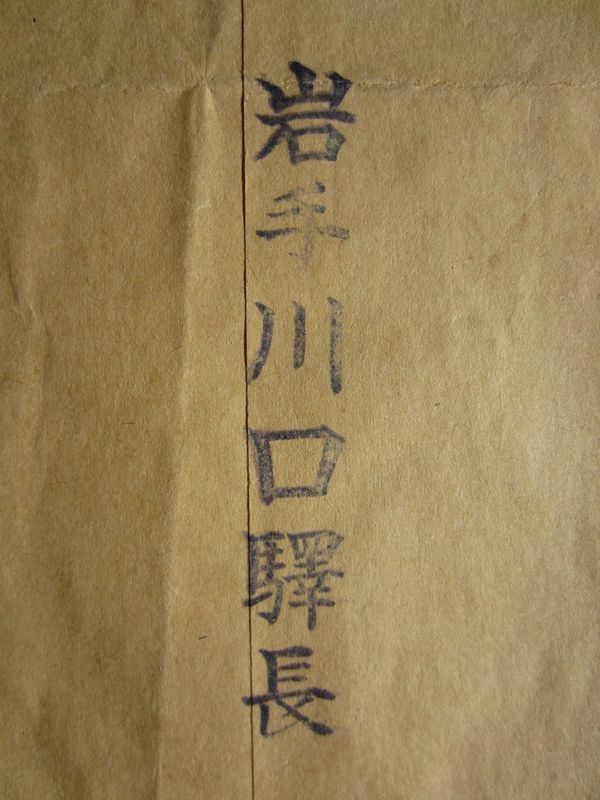 岩手川口驛長